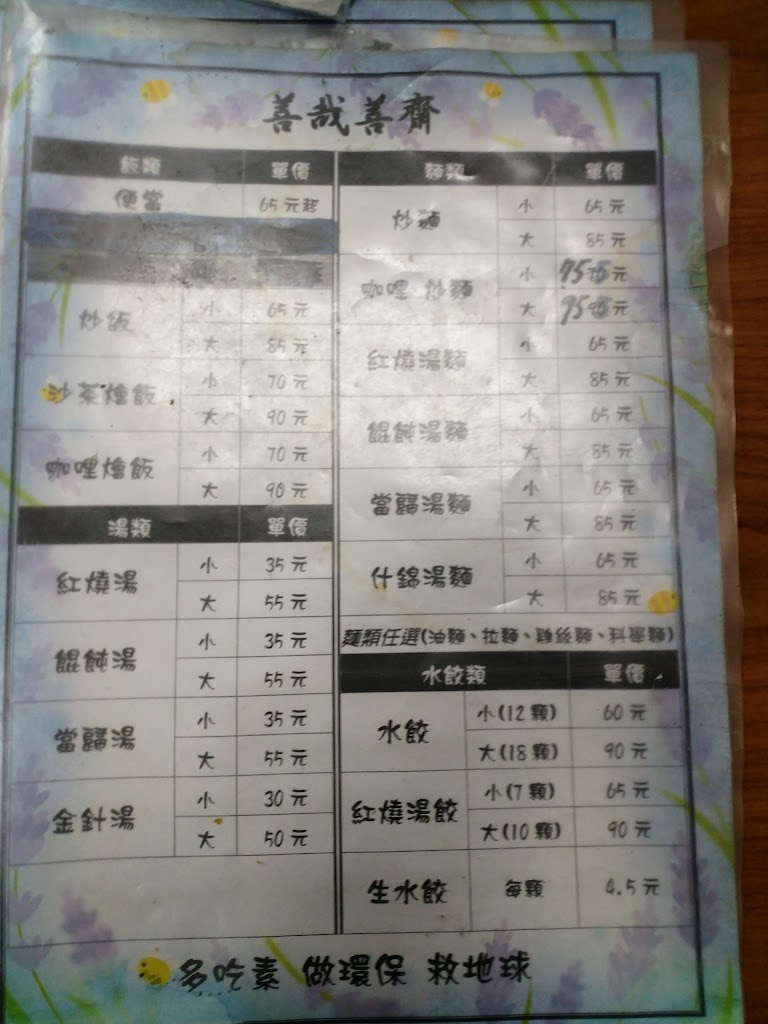 善哉善齋
飯類 單價
便當 65元起
炒飯 小 65元
大 85元
沙茶燴飯 小 70元
大 90元
咖哩燴飯 小 70元
大 90元
湯類 單價
紅燒湯 小 35元
大 55元
餛飩湯 小 35元
大 55元
當歸湯 小 35元
大 55元
金針湯 小 30元
大 50元
麵類 單價
炒麵 小 65元
大 85元
咖哩 炒麵 小 75元
大 95元
紅燒湯麵 小 65元
大 85元
餛飩湯麵 小 65元
大 85元
當歸湯麵 小 65元
大 85元
什錦湯麵 小 65元
大 85元
麵類任選(油麵、拉麵、雞絲麵、科學麵)
水餃類 單價
水餃 小(12顆) 60元
大(18顆) 90元
紅燒湯餃 小(7顆) 65元
大(10顆) 90元
生水餃 每顆 4.5元
多吃素 做環保 救地球